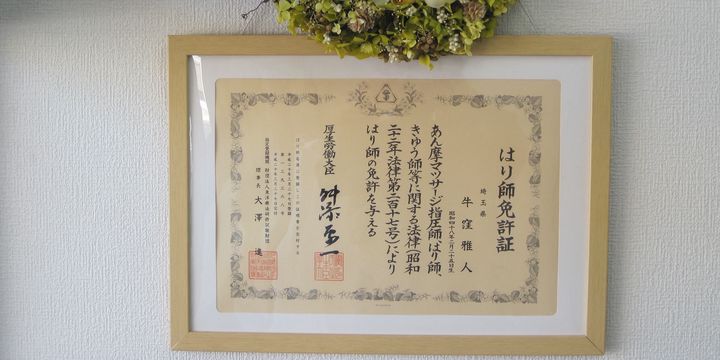 はり師免許証
埼玉県
牛窪雅人
昭和四十八年二月二十五日生
あん摩マツサージ指圧師、はり師、
きゆう師等に関する法律(昭和
二十二年法律第二百十七号)により
はり師の免許を与える
厚生労働大臣
舛添要一
理事長 大澤進